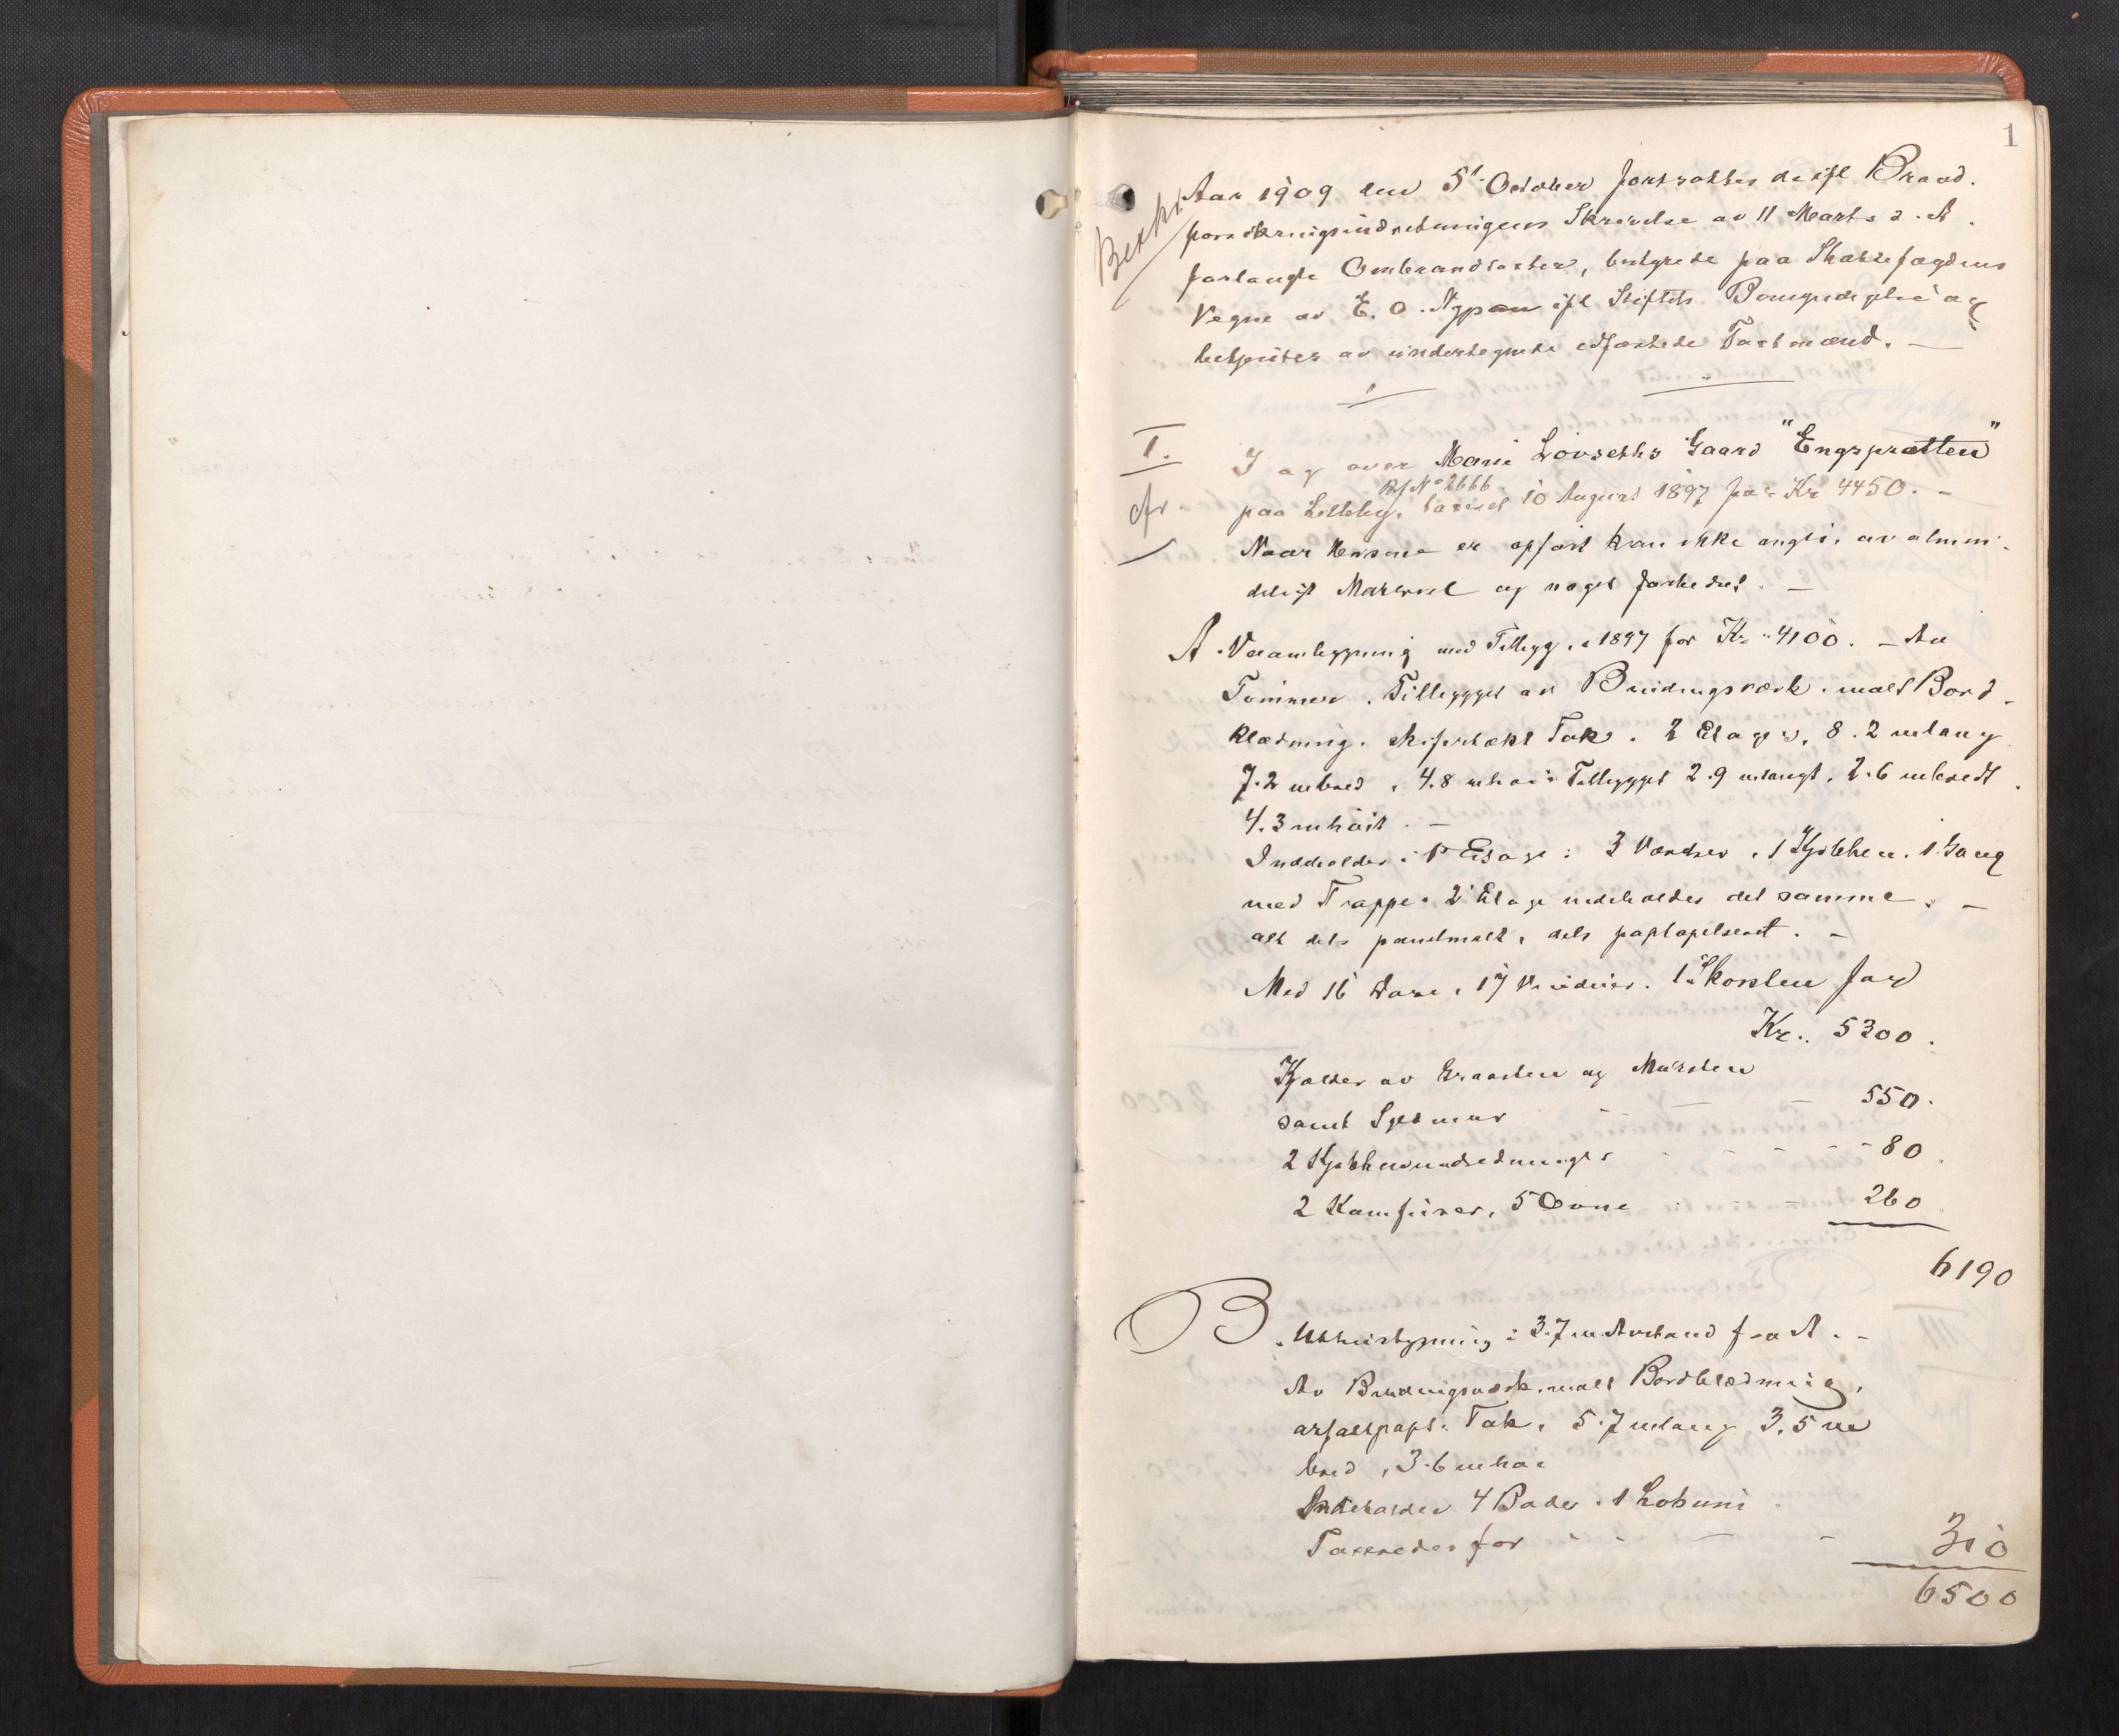 1
Aar 1909 den 5t October fortsattes de ifl Brand-
forsikringsindretningens Skrivelse av 11 Marts d. A.
forlangte Ombrandtaxter, bestyrede paa
Vegne av E. O. Nypan ifl Stiftets og
betjentes av undertegnede edfæstede Taxtmænd. —
I.
I og over Marie Løvseths Gaard "Engsprætten"
Bf No 2666
paa Lilleby, taxeret 10 August 1897 for Kr 4450. -
Naar Husene er opført kan ikke angis, av almin-
deligt Material og noget forbedret. —
A. Vaaningsbygning med Tilbygg, i 1897 for Kr 4100. - Av
Tømmer, Tilbygget av Bindingsverk, malt Bord-
klædning, skifertækt Tak, 2 Etager, 8.2 m lang
7.2 m bred, 4.8 m høi, Tilbygget 2.9 m langt, 2.6 m bredt
4.3 m høit. —
Indeholder i 1st Etage: 3 Værelser, 1 Kjøkken, 1 Gang
med Trappe. 2 Etage indeholder det samme. —
alt dels panelmalt, dels paptapetseret. —
Med 16 Døre, 17 Vinduer, 1 Skorsten for
Kr. 5300.
Kjælder av Graasten og Mursten
samt 550.
2 Kjøkkenindredninger - - - 80.
2 Kamfurer, 5 Ovne 260
6190
B. Uthusbygning i 3.7 m Avstand fra A. -
Av Bindingsværk, malt Bordklædning,
asfaltpapt. Tak, 5.7 m lang 3.5 m
bred, 3.6 m høi
Indeholder 4 Boder, 1 Lokum
Taxeredes for - - - 310
6500